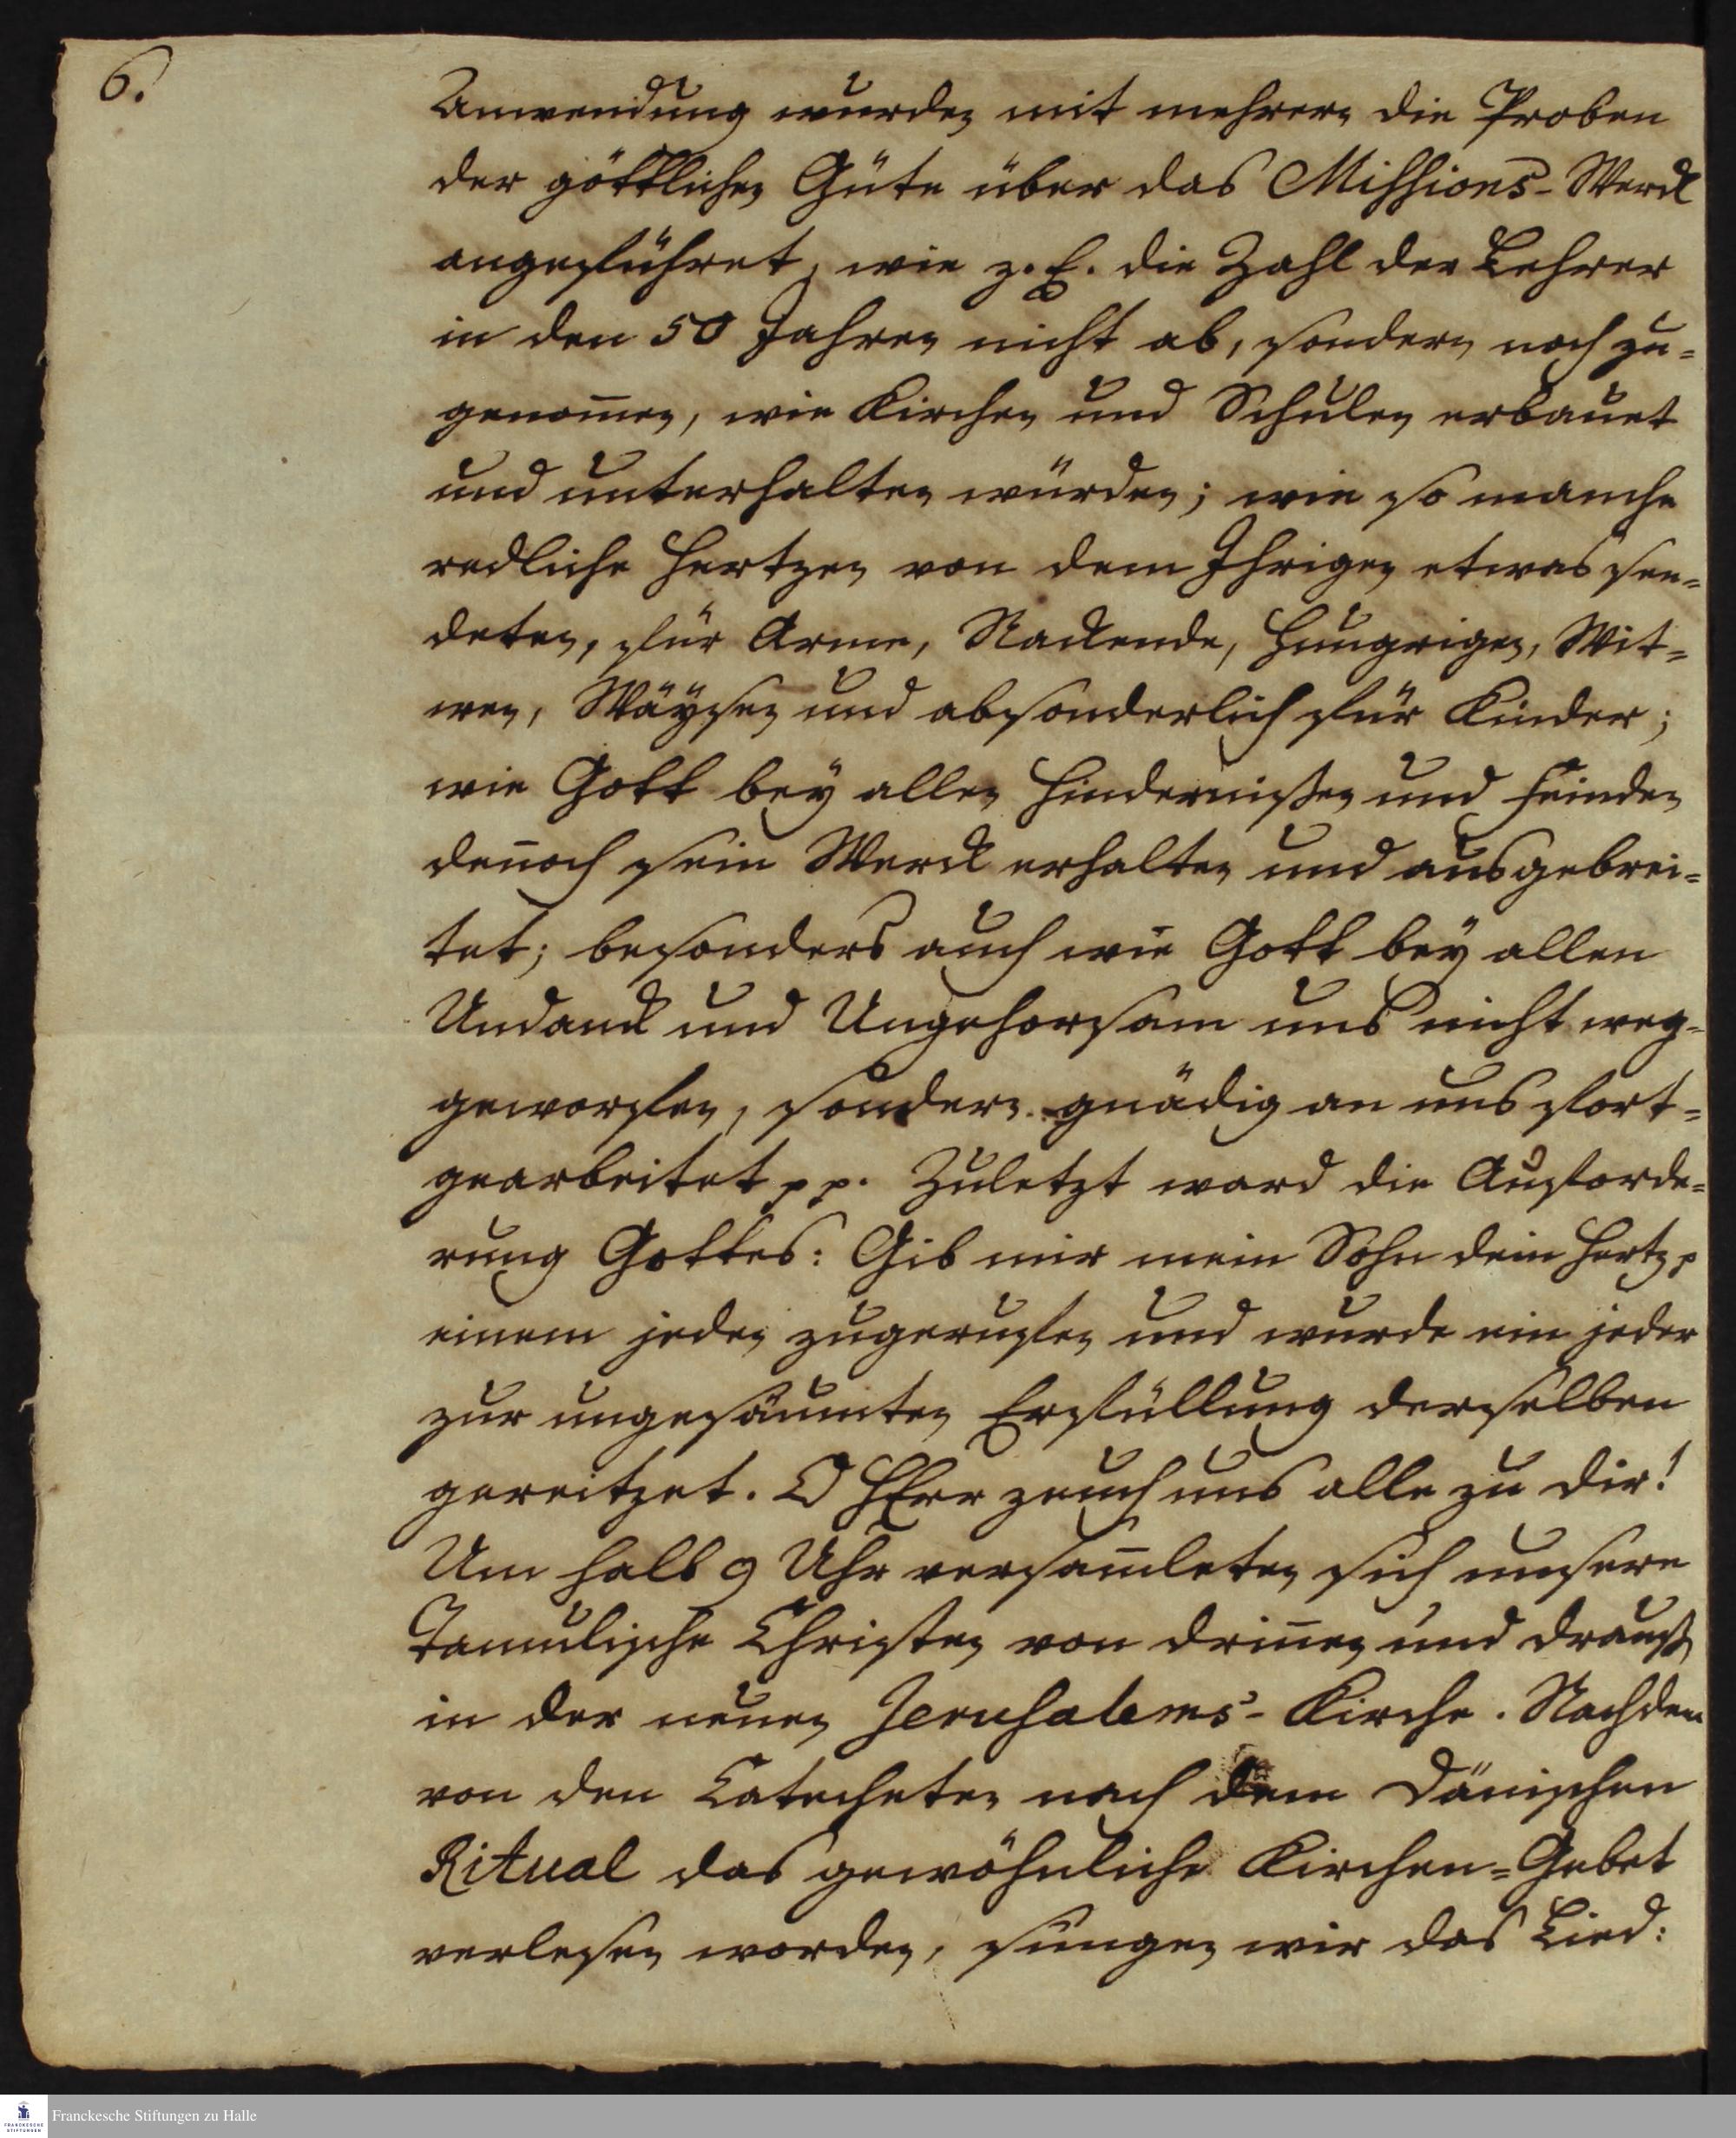 6.
Anwendung wurden mit mehrern die Proben
der göttlichen Güte über das Missions-Werck
angeführet, wie z. E. die Zahl der Lehrer
in den 50 Jahren nicht ab, sondern noch zu-
genom̄en, wie Kirchen und Schulen erbauet
und unterhalten würden; wie so manche
redliche Hertzen von dem Ihrigen etwas sen-
deten, für Arme, Nackende, Hungrigen, Wit-
wen, Wäysen und absonderlich für Kinder;
wie Gott bey allen Hindernißen und Feinden
den̄och sein Werck erhalten und ausgebrei-
tet; besonders auch wie Gott bey allen
Undanck und Ungehorsam uns nicht weg-
geworfen, sondern gnädig an uns fort-
gearbeitet pp. Zuletzt ward die Auforde-
rung Gottes: Gib mir mein Sohn dein Hertz p
einem jeden zugerufen und wurde ein jeder
zur ungesäumten Erfüllung derselben
gereitzet. O HErr zeuch uns alle zu dir!
Um halb 9 Uhr versam̄leten sich unsere
Tamulische Christen von drin̄en und draußen
in der neuen Jerusalems-Kirche. Nachdem
von den Catecheten nach dem Dänischen
Ritual das gewöhnliche Kirchen-Gebet
verlesen worden, sungen wir das Lied:
Franckesche Stiftungen zu Halle
FRANCKESCHE
STIFTUNGEN